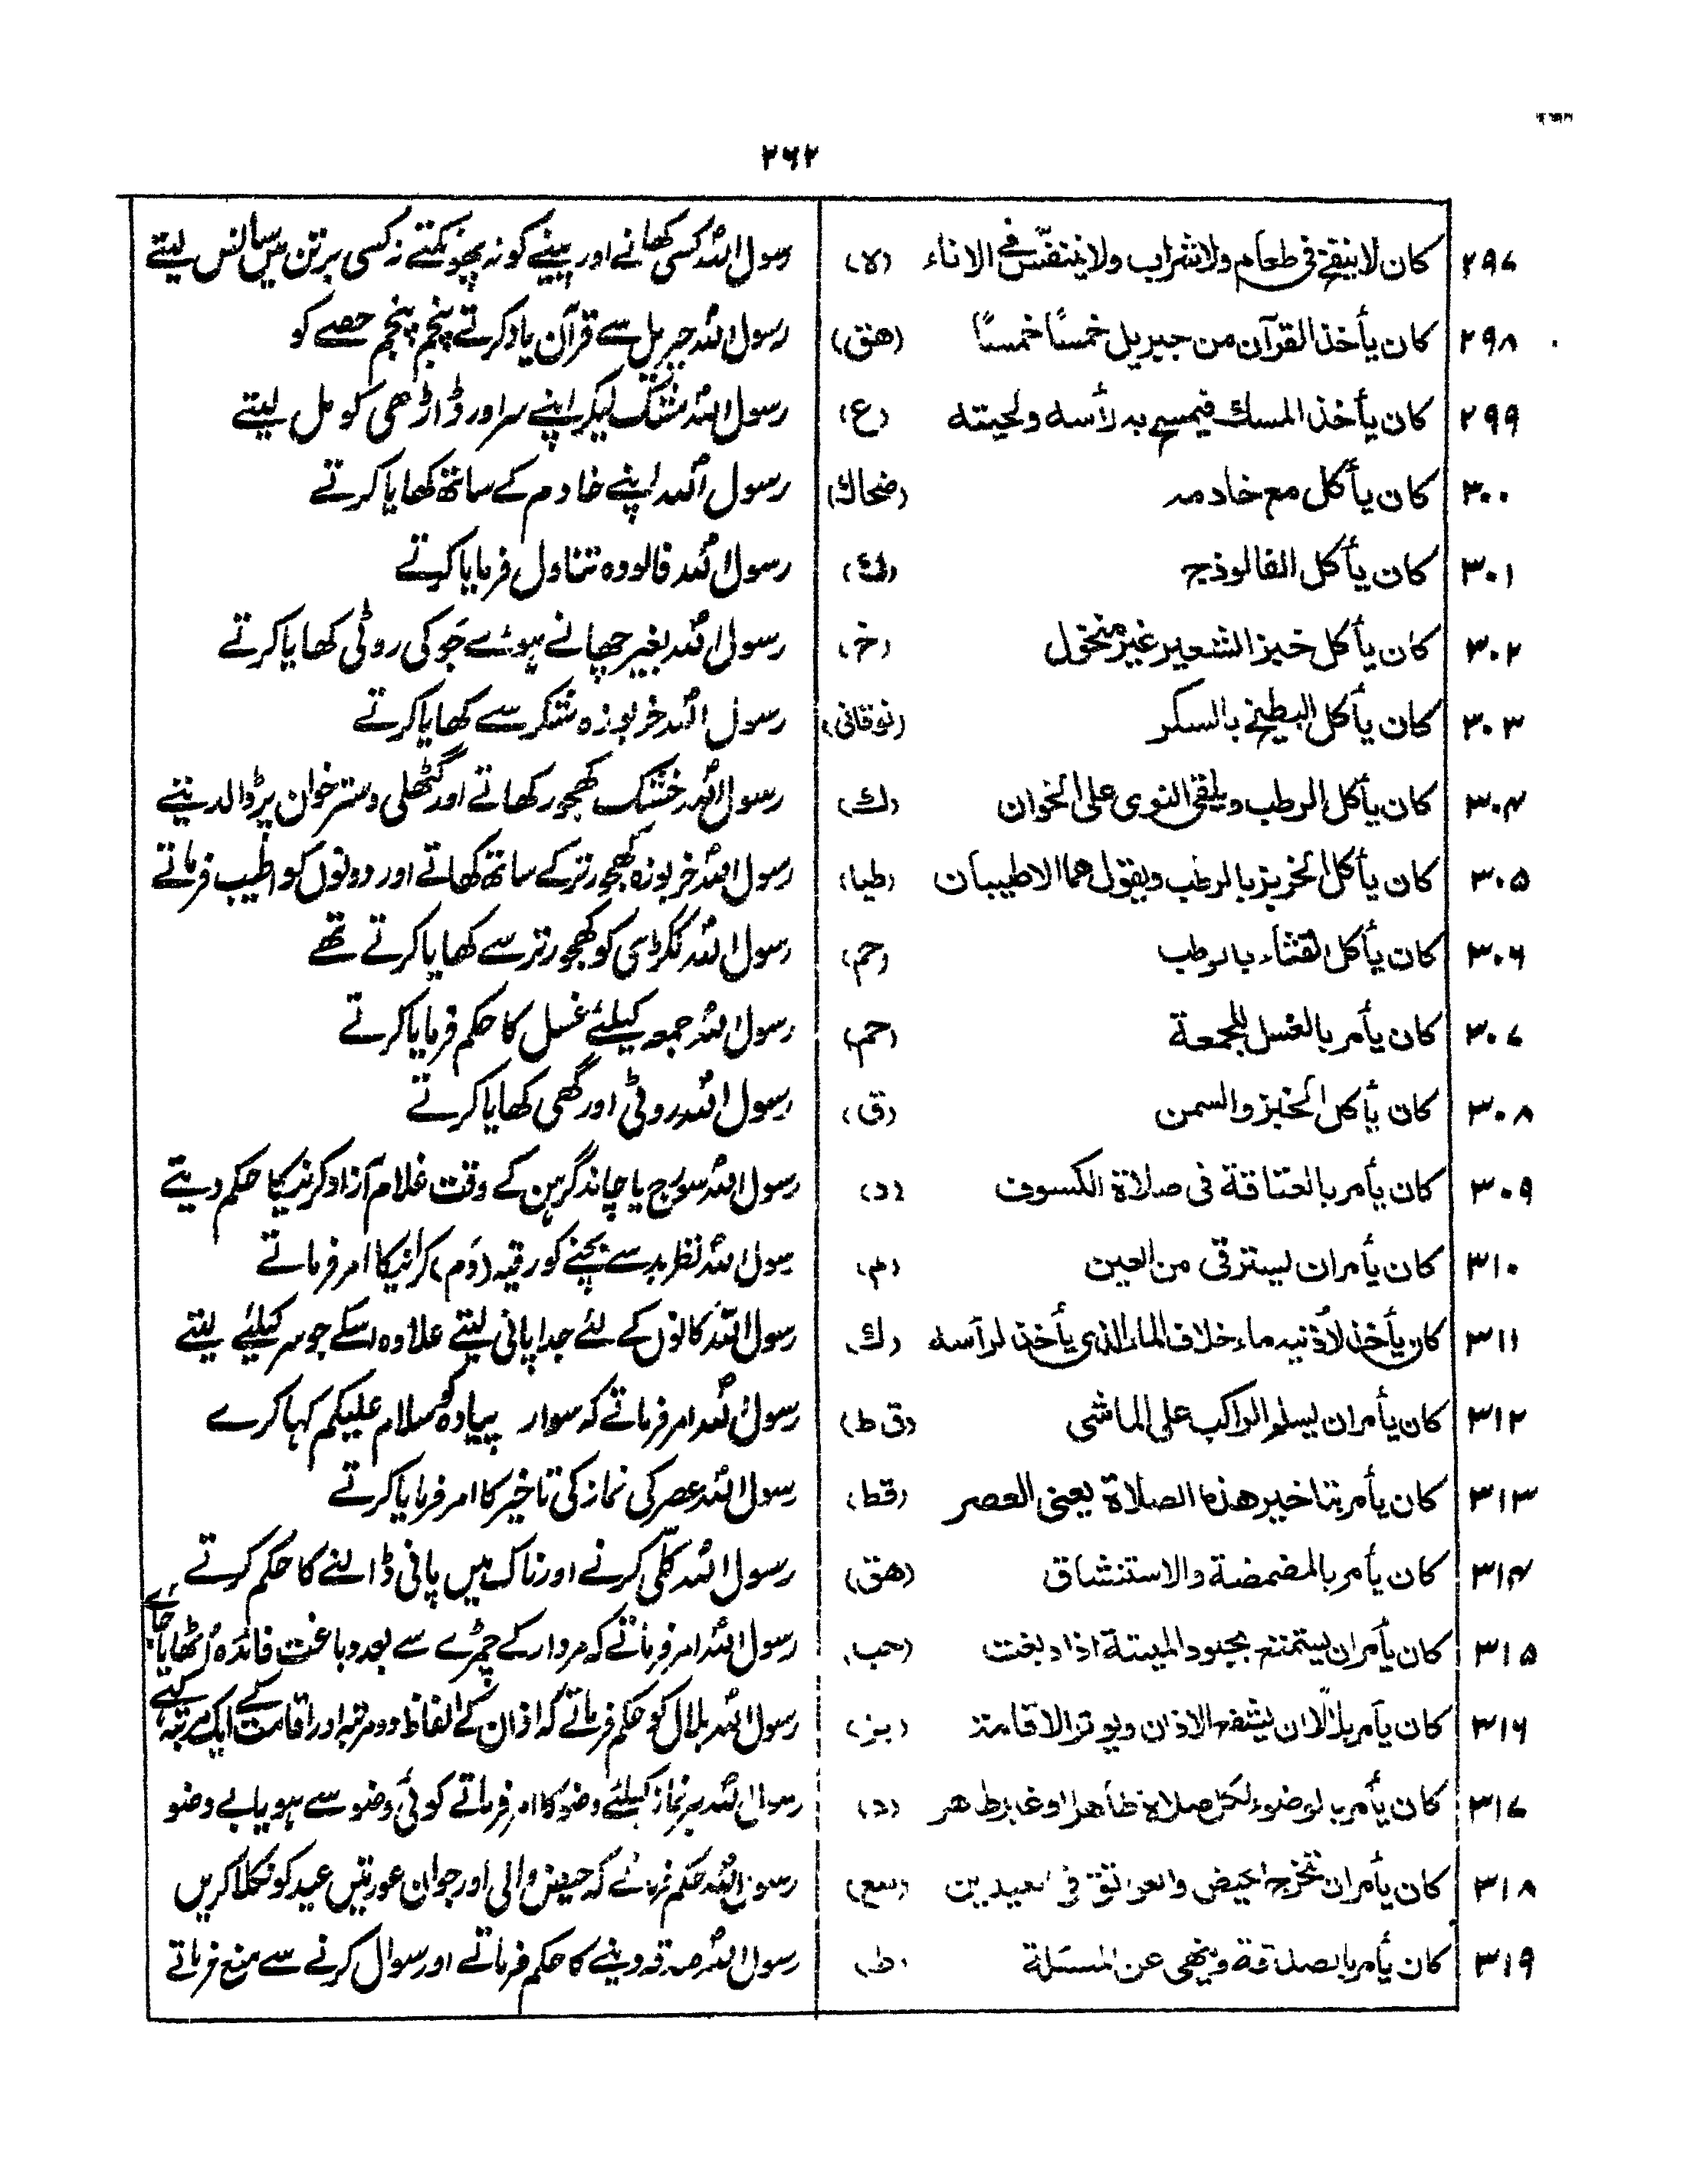 ۲۶۲
۲۹۷ کان لا ینفخ فی طعام ولا شراب ولا یتنفّس فی الاناء (لا) رسول اللہ کسی کھانے اور پینے کو نہ پھونکتے نہ کسی برتن میں سانس لیتے
۲۹۸ کان یأخذ القرآن من جبریل خمسًا خمسًا (هق) رسول اللہ جبریل سے قرآن یاد کرتے پنجم پنجم حصے کو
۲۹۹ کان یأخذ المسك فیمسح به رأسه ولحیته (ع) رسول اللہ مشک لیکر اپنے سر اور ڈاڑھی کو مل لیتے
۳۰۰ کان یأکل مع خادمه (ضحاك) رسول اللہ اپنے خادم کے ساتھ کھایا کرتے
۳۰۱ کان یأکل الفالوذج رسول اللہ فالودہ تناول فرمایا کرتے
۳۰۲ کان یأکل خبز الشعیر غیر منخول (خ) رسول اللہ بغیر چھانے ہوئے جَو کی روٹی کھایا کرتے
۳۰۳ کان یأکل البطیخ بالسکر (نوقانی) رسول اللہ خربوزہ شکر سے کھایا کرتے
۳۰۴ کان یأکل الرطب ویلقی النوی علی الخوان (ك) رسول اللہ خشک کھجور کھاتے اور گٹھلی دسترخوان پر ڈالدیتے
۳۰۵ کان یأکل الخربز بالرطب ویقول هما الاطیبان (طیا) رسول اللہ خربوزہ کھجور تر کے ساتھ کھاتے اور دونوں کو اطیب فرماتے
۳۰۶ کان یأکل القثاء بالرطب (حم) رسول اللہ ککڑی کو کھجور تر سے کھایا کرتے تھے
۳۰۷ کان یأمر بالغسل للجمعة (حم) رسول اللہ جمعہ کیلئے غسل کا حکم فرمایا کرتے
۳۰۸ کان یأکل الخبز والسمن (ق) رسول اللہ روٹی اور گھی کھایا کرتے
۳۰۹ کان یأمر بالعتاقة فی صلاة الکسوف (د) رسول اللہ سورج یا چاند گرہن کے وقت غلام آزاد کرنیکا حکم دیتے
۳۱۰ کان یأمر ان یسترقی من العین (م) رسول اللہ نظر بد سے بچنے کو رقیہ (دم) کرانیکا امر فرماتے
۳۱۱ کان یأخذ لأذنیه ماء خلاف الماء الذی یأخذ لرأسه (ك) رسول اللہ کانوں کے لئے جدا پانی لیتے علاوہ اسکے جو سر کیلئے لیتے
۳۱۲ کان یأمر ان یسلم الراکب علی الماشی (ق ط) رسول اللہ امر فرماتے کہ سوار پیادہ کو سلام علیکم کہا کرے
۳۱۳ کان یأمر بتاخیر هذه الصلاة یعنی العصر (قط) رسول اللہ عصر کی نماز کی تاخیر کا امر فرمایا کرتے
۳۱۴ کان یأمر بالمضمضة والاستنشاق (هق) رسول اللہ کلّی کرنے اور ناک میں پانی ڈالنے کا حکم کرتے
۳۱۵ کان یأمر ان یستمتع بجلود المیتة اذا دبغت (حب) رسول اللہ امر فرماتے کہ مردار کے چمڑے سے بعد دباغت فائدہ اُٹھایا جائے
۳۱۶ کان یأمر بلالًا ان یشفع الاذان ویوتر الاقامة (بز) رسول اللہ بلال کو حکم فرماتے کہ اذان کے الفاظ دو مرتبہ اور اقامت کے ایک مرتبہ کہے
۳۱۷ کان یأمر بالوضوء لکل صلاة طاهرا او غیر طاهر (د) رسول اللہ ہر نماز کیلئے وضو کا امر فرماتے کوئی وضو سے ہو یا بے وضو
۳۱۸ کان یأمر ان تخرج الحیض والعواتق فی العیدین رسول اللہ حکم فرماتے کہ حیض والی اور جوان عورتیں عید کو نکلا کریں
۳۱۹ کان یأمر بالصدقة وینهی عن المسئلة (ط) رسول اللہ صدقہ دینے کا حکم فرماتے اور سوال کرنے سے منع فرماتے